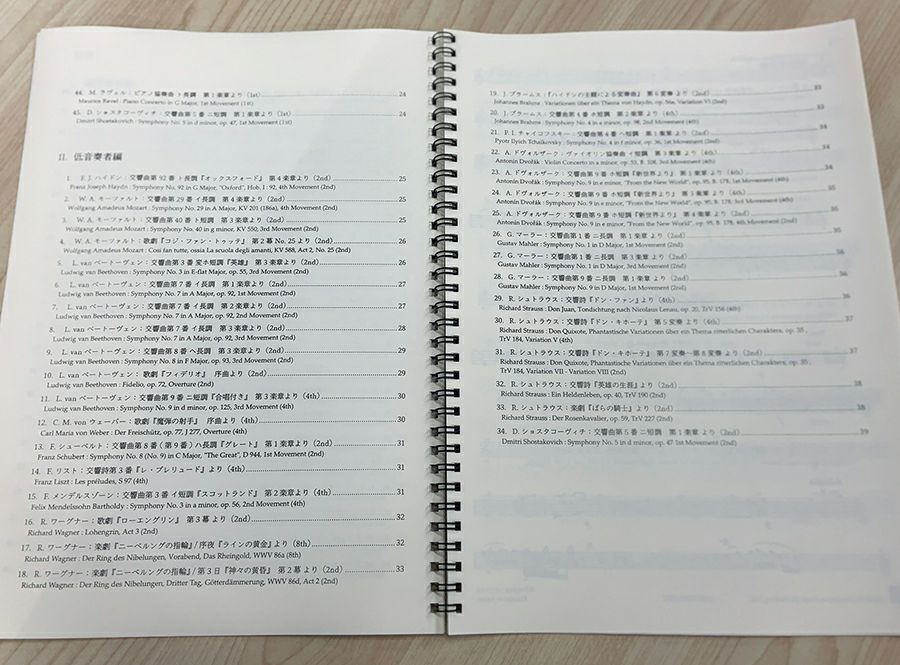 44. M. ラヴェル：ピアノ協奏曲 ト長調 第1楽章より (1st) 24
Maurice Ravel : Piano Concerto in G Major, 1st Movement (1st)
45. D. ショスタコーヴィチ：交響曲第5番 ニ短調 第1楽章より (1st) 24
Dmitri Shostakovich : Symphony No. 5 in d minor, op. 47, 1st Movement (1st)
II. 低音奏者編
1. F. J. ハイドン：交響曲第92番 ト長調『オックスフォード』 第4楽章より (2nd) 25
Franz Joseph Haydn : Symphony No. 92 in G Major, "Oxford", Hob. I : 92, 4th Movement (2nd)
2. W. A. モーツァルト：交響曲第29番 イ長調 第4楽章より (2nd) 25
Wolfgang Amadeus Mozart : Symphony No. 29 in A Major, KV 201 (186a), 4th Movement (2nd)
3. W. A. モーツァルト：交響曲第40番 ト短調 第3楽章より (2nd) 25
Wolfgang Amadeus Mozart : Symphony No. 40 in g minor, KV 550, 3rd Movement (2nd)
4. W. A. モーツァルト：歌劇『コジ・ファン・トゥッテ』 第2幕 No. 25 より (2nd) 26
Wolfgang Amadeus Mozart : Così fan tutte, ossia La scuola degli amanti, KV 588, Act 2, No. 25 (2nd)
5. L. van ベートーヴェン：交響曲第3番 変ホ短調『英雄』 第3楽章より (2nd) 26
Ludwig van Beethoven : Symphony No. 3 in E-flat Major, op. 55, 3rd Movement (2nd)
6. L. van ベートーヴェン：交響曲第7番 イ長調 第1楽章より (2nd) 27
Ludwig van Beethoven : Symphony No. 7 in A Major, op. 92, 1st Movement (2nd)
7. L. van ベートーヴェン：交響曲第7番 イ長調 第2楽章より (2nd) 27
Ludwig van Beethoven : Symphony No. 7 in A Major, op. 92, 2nd Movement (2nd)
8. L. van ベートーヴェン：交響曲第7番 イ長調 第3楽章より (2nd) 28
Ludwig van Beethoven : Symphony No. 7 in A Major, op. 92, 3rd Movement (2nd)
9. L. van ベートーヴェン：交響曲第8番 ヘ長調 第3楽章より (2nd) 29
Ludwig van Beethoven : Symphony No. 8 in F Major, op. 93, 3rd Movement (2nd)
10. L. van ベートーヴェン：歌劇『フィデリオ』 序曲より (2nd) 29
Ludwig van Beethoven : Fidelio, op. 72, Overture (2nd)
11. L. van ベートーヴェン：交響曲第9番 ニ短調『合唱付き』 第3楽章より (4th) 30
Ludwig van Beethoven : Symphony No. 9 in d minor, op. 125, 3rd Movement (4th)
12. C. M. von ウェーバー：歌劇『魔弾の射手』 序曲より (4th) 30
Carl Maria von Weber : Der Freischütz, op. 77, J 277, Overture (4th)
13. F. シューベルト：交響曲第8番 (第9番) ハ長調『グレート』 第1楽章より (2nd) 31
Franz Schubert : Symphony No. 8 (No. 9) in C Major, "The Great", D 944, 1st Movement (2nd)
14. F. リスト：交響詩第3番『レ・プレリュード』より (4th) 31
Franz Liszt : Les préludes, S 97 (4th)
15. F. メンデルスゾーン：交響曲第3番 イ短調『スコットランド』 第2楽章より (4th) 31
Felix Mendelssohn Bartholdy : Symphony No. 3 in a minor, op. 56, 2nd Movement (4th)
16. R. ワーグナー：歌劇『ローエングリン』 第3幕より (2nd) 32
Richard Wagner : Lohengrin, Act 3 (2nd)
17. R. ワーグナー：楽劇『ニーベルングの指輪』/ 序夜『ラインの黄金』より (8th) 32
Richard Wagner : Der Ring des Nibelungen, Vorabend, Das Rheingold, WWV 86a (8th)
18. R. ワーグナー：楽劇『ニーベルングの指輪』/ 第3日『神々の黄昏』 第2幕より (2nd) 33
Richard Wagner : Der Ring des Nibelungen, Dritter Tag, Götterdämmerung, WWV 86d, Act 2 (2nd)
19. J. ブラームス：『ハイドンの主題による変奏曲』 第6変奏より (2nd) 33
Johannes Brahms : Variationen über ein Thema von Haydn, op. 56a, Variation VI (2nd)
20. J. ブラームス：交響曲第4番 ホ短調 第2楽章より (4th) 34
Johannes Brahms : Symphony No. 4 in e minor, op. 98, 2nd Movement (4th)
21. P. I. チャイコフスキー：交響曲第4番 ヘ短調 第1楽章より (2nd) 34
Pyotr Ilyich Tchaikovsky : Symphony No. 4 in f minor, op. 36, 1st Movement (2nd)
22. A. ドヴォルザーク：ヴァイオリン協奏曲 イ短調 第3楽章より (4th)
Antonín Dvořák : Violin Concerto in a minor, op. 53, B. 108, 3rd Movement (4th)
23. A. ドヴォルザーク：交響曲第9番 ホ短調『新世界より』 第1楽章より (4th)
Antonín Dvořák : Symphony No. 9 in e minor, "From the New World", op. 95, B. 178, 1st Movement (4th)
24. A. ドヴォルザーク：交響曲第9番 ホ短調『新世界より』 第3楽章より (4th) 35
Antonín Dvořák : Symphony No. 9 in e minor, "From the New World", op. 95, B. 178, 3rd Movement (4th)
25. A. ドヴォルザーク：交響曲第9番 ホ短調『新世界より』 第4楽章より (2nd) 35
Antonín Dvořák : Symphony No. 9 in e minor, "From the New World", op. 95, B. 178, 4th Movement (2nd)
26. G. マーラー：交響曲第1番 ニ長調 第1楽章より (2nd)
Gustav Mahler : Symphony No. 1 in D Major, 1st Movement (2nd)
27. G. マーラー：交響曲第1番 ニ長調 第3楽章より (2nd) 36
Gustav Mahler : Symphony No. 1 in D Major, 3rd Movement (2nd)
28. G. マーラー：交響曲第9番 ニ長調 第1楽章より (2nd) 36
Gustav Mahler : Symphony No. 9 in D Major, 1st Movement (2nd)
29. R. シュトラウス：交響詩『ドン・ファン』より (4th) 36
Richard Strauss : Don Juan, Tondichtung nach Nicolaus Lenau, op. 20, TrV 156 (4th)
30. R. シュトラウス：交響詩『ドン・キホーテ』 第5変奏より (4th) 37
Richard Strauss : Don Quixote, Phantastische Variationen über ein Thema ritterlichen Charakters, op. 35 ,
TrV 184, Variation V (4th)
31. R. シュトラウス：交響詩『ドン・キホーテ』 第7変奏〜第8変奏より (2nd) 37
Richard Strauss : Don Quixote, Phantastische Variationen über ein Thema ritterlichen Charakters, op. 35 ,
TrV 184, Variation VII - Variation VIII (2nd)
32. R. シュトラウス：交響詩『英雄の生涯』より (2nd) 38
Richard Strauss : Ein Heldenleben, op. 40, TrV 190 (2nd)
33. R. シュトラウス：楽劇『ばらの騎士』より (2nd) 38
Richard Strauss : Der Rosenkavalier, op. 59, TrV 227 (2nd)
34. D. ショスタコーヴィチ：交響曲第5番 ニ短調 第1楽章より (2nd) 39
Dmitri Shostakovich : Symphony No. 5 in d minor, op. 47 1st Movement (2nd)